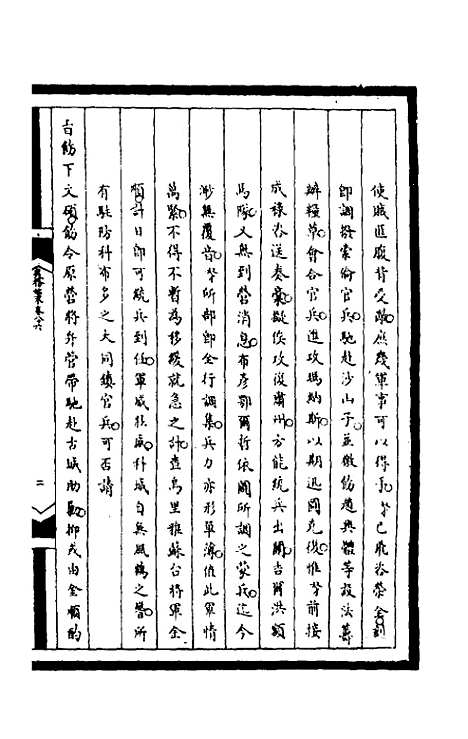 使賊匪腹背受敵庶幾軍事可以得手奴才已飛咨榮全刻
即調撥索倫官兵馳赴沙山子並檄飭趙興體等設法籌
辦糧草會合官兵進攻瑪納斯以期迅圖克復惟奴才前接
成祿咨送奏稾擬俟攻復肅州方能統兵出關吉爾洪額
馬隊又無到營消息布彥鄂爾哲依圖所調之蒙兵迄今
渺無覆音奴才所部即全行調集兵力亦形單薄值此軍情
萬緊不得不暫為移緩就急之計查烏里雅蘇台將軍金
順計日即可統兵到任軍威振盛科城自無風鶴之警所
有駐防科布多之大同鎮官兵可否請
旨飭下文碩飭令原營將弁管帶馳赴古城助勦抑或由金順酌
二